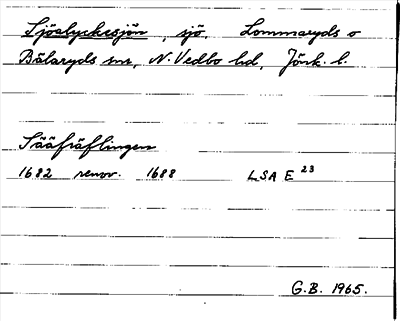 Sjöalyckesjön, sjö, Lommaryds o
Bälaryds snr, N. Vedbo hd, Jönk. l.
Sääfräflingen
1682 renov. 1688 LSA E 23
G.B. 1965.